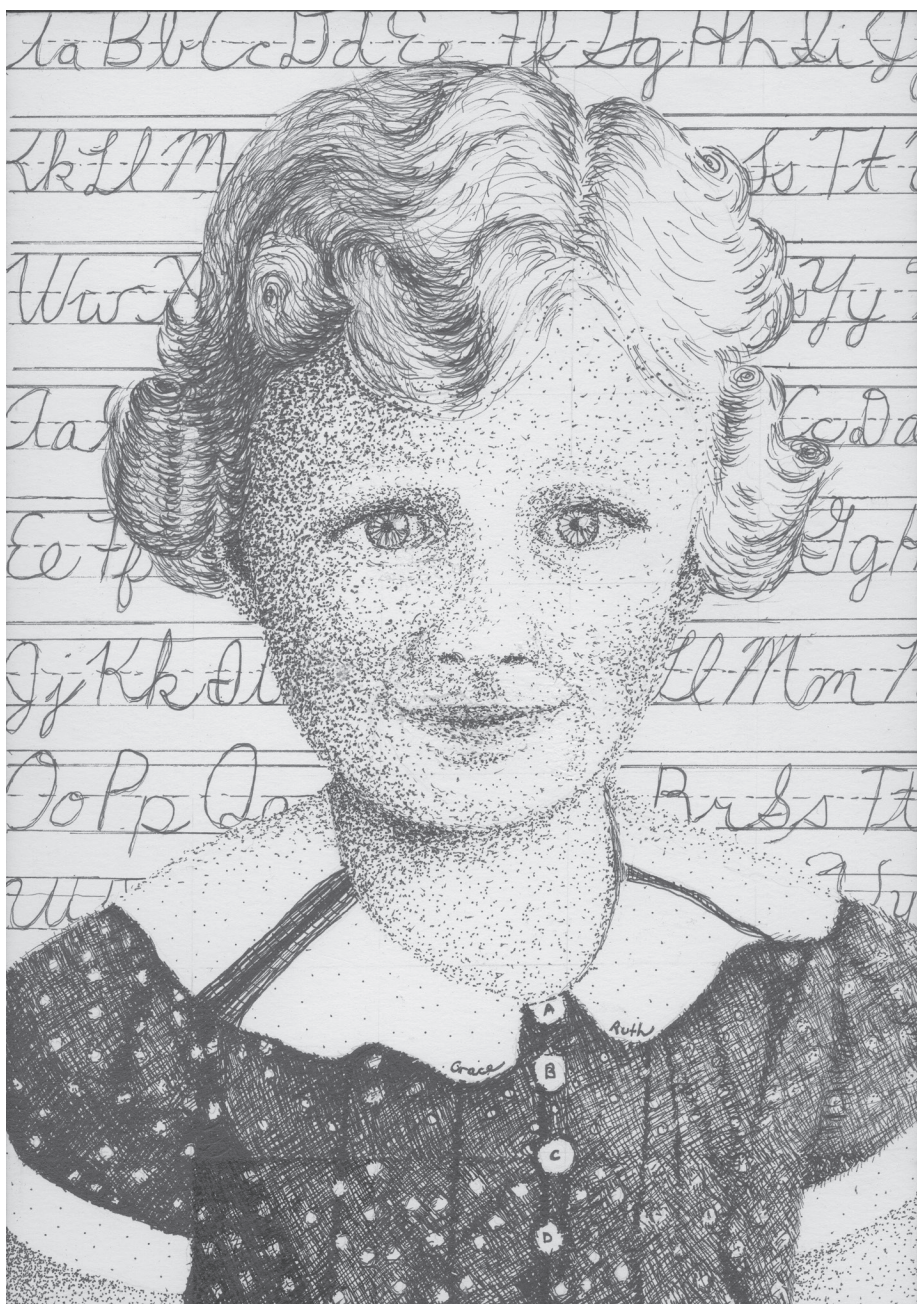 Aa Bb Cc Dd Ee Ff Gg Hh Ii J
Kk Ll M Ss Tt
Ww X Yy
Aa Cc D
Ee Ff Gg
Jj Kk Ll Mm
Oo Pp Q Rr Ss Tt
A
Ruth
Grace
B
C
D